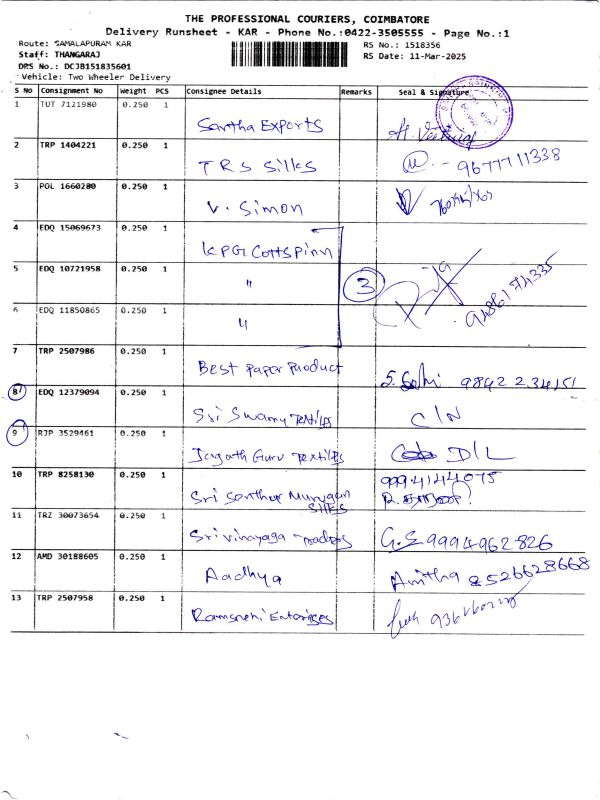 THE PROFESSIONAL COURIERS, COIMBATORE
Delivery Runsheet - KAR - Phone No.:0422-3505555 - Page No.:1
Route: SAMALAPURAM KAR
Staff: THANGARAJ
DRS No.: DCJB151835601
Vehicle: Two Wheeler Delivery
RS No.: 1518356
RS Date: 11-Mar-2025
S No Consignment No Weight PCS Consignee Details Remarks Seal & Signature
1 TUT 7121980 0.250 1 Santha Exports
2 TRP 1404221 0.250 1 TRS Silks - 9677711338
3 POL 1660280 0.250 1 V. Simon
4 EDQ 15069673 0.250 1 KPG Cottspinn
5 EDQ 10721958 0.250 1 " 3
6 EDQ 11850865 0.250 1 "
7 TRP 2507986 0.250 1 Best Paper Product 98422 34151
8 EDQ 12379094 0.250 1 Sri Swamy Textiles C/N
9 RJP 3529461 0.250 1 Jagath Guru Textiles D/L
10 TRP 8258130 0.250 1 Sri Santhur Murugan Silks 9994144075
11 TRZ 30073654 0.250 1 Sri Vinayaga Traders G.S 9994962826
12 AMD 30188605 0.250 1 Aadhya Anitha 8526628668
13 TRP 2507958 0.250 1 Ramsnehi Enterises